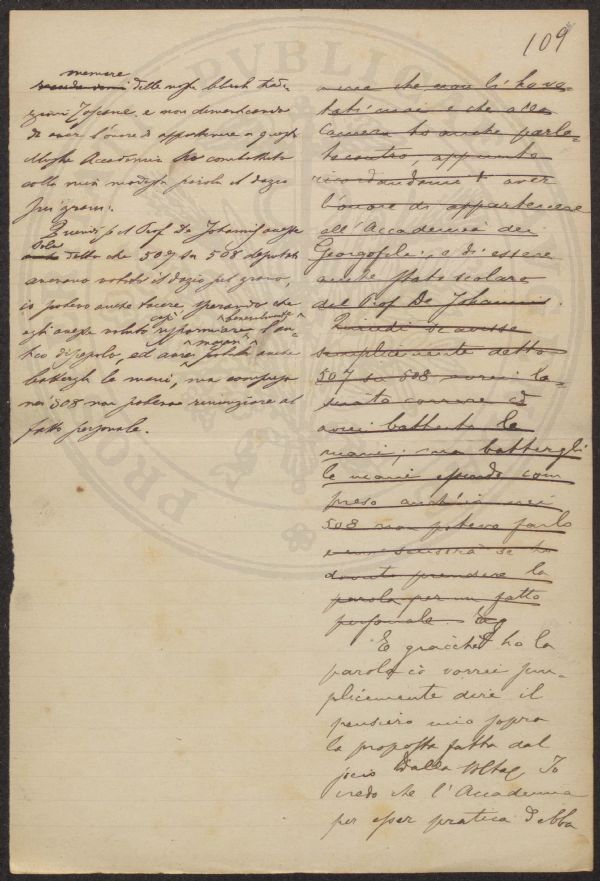 109
memore
delle nostre libere tradi-
zioni Toscane, e non dimenticando
di aver l'onore di appartenere a questa
illustre Accademia ho combattuto
colla mia modesta parola il dazio
sui grani.
Quindi se il Prof. De Johannis avesse
solo detto che 507 su 508 deputati
avevano votato il dazio sul grano,
io potevo anche tacere sperando che
egli avesse voluto così benevolmente risparmiare l'an-
tico discepolo, ed avrei magari potuto anche
battergli le mani, ma compreso
nei 508 non potevo rinunziare al
fatto personale.
che non li ho vo-
tati mai e che alla
Camera ho anche parla-
to contro, appunto
ricordandomi di aver
l'onore di appartenere
all'Accademia dei
Georgofili, e di essere
anche stato scolaro
del Prof. De Johannis.
Quindi se avesse
semplicemente detto
507 su 508 avrei la-
sciato correre ed
avrei battuto le
mani; ma battergli
le mani essendo com
preso anch'io nei
508 non potevo farlo
e mi scuserà se ho
dovuto prendere la
parola per un fatto
personale
E giacchè ho la
parola io vorrei sem-
plicemente dire il
pensiero mio sopra
la proposta fatta dal
socio Dalla Volta. Io
credo che l'Accademia
per esser pratica debba